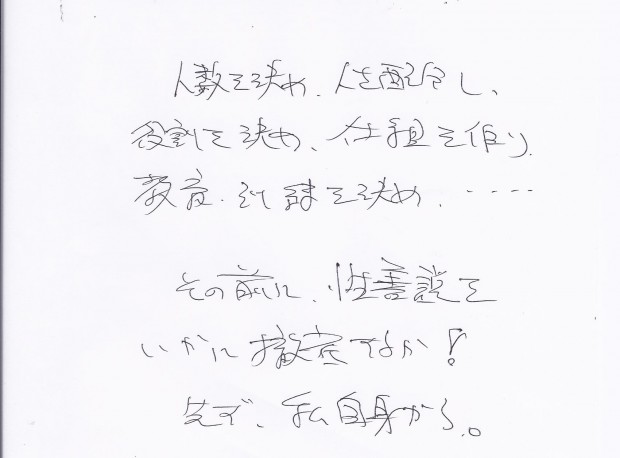 人数を決め、人を配置し、
役割を決め、仕組を作り、
教育・訓練を決め、‥‥
その前に、性善説を
いかに撤底するか!
先ず、私自身から。